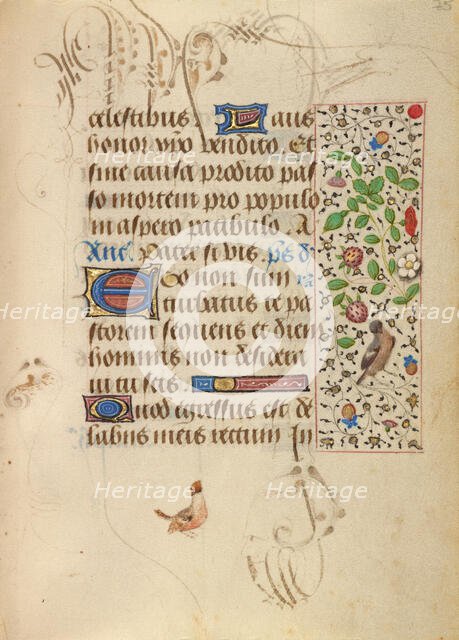 celestibus Laus
honor xpo vendito Et
sine causa prodito pas
so mortem pro populo
in aspero patibulo A
Pater si vis. ps d
Ego non sum
turbatus te pa
storem sequens et diem
hominis non
ui tu scis
Quod egressus est de
labiis meis rectum in
Heritage Heritage Heritage
Heritage Heritage Heritage
Heritage Heritage Heritage